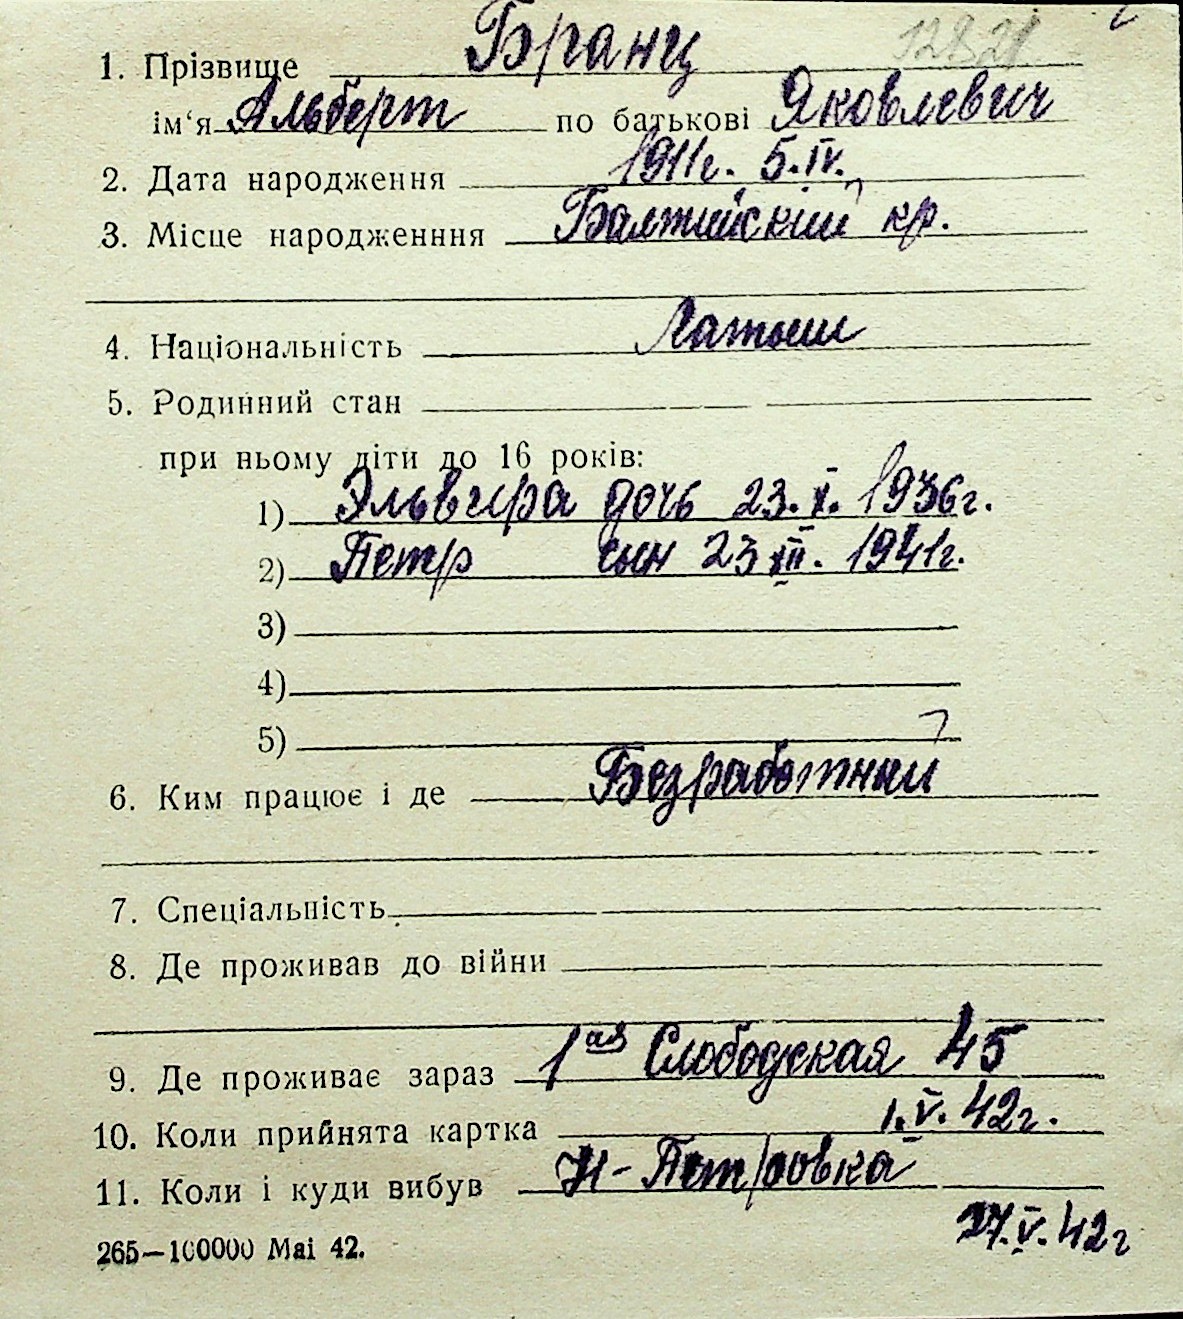 12821
1. Прізвище Бранц
ім‘я Альберт по батькові Яковлевич
2. Дата народження 1911г. 5.IV.
3. Місце народженння Балтийский кр.
4. Національність Латыш
5. Родинний стан
при ньому діти до 16 років:
1) Эльвира дочь 23.X. 1936г.
2) Петр сын 23 XII. 1941г.
3)
4)
5)
6. Ким працює і де Безработный
7. Спеціальність
8. Де проживав до війни
9. Де проживає зараз 1ая Слободская 45
10. Коли прийнята картка 1.V.42г.
11. Коли і куди вибув Н-Петровка
27.V.42г
265—100000 Mai 42.